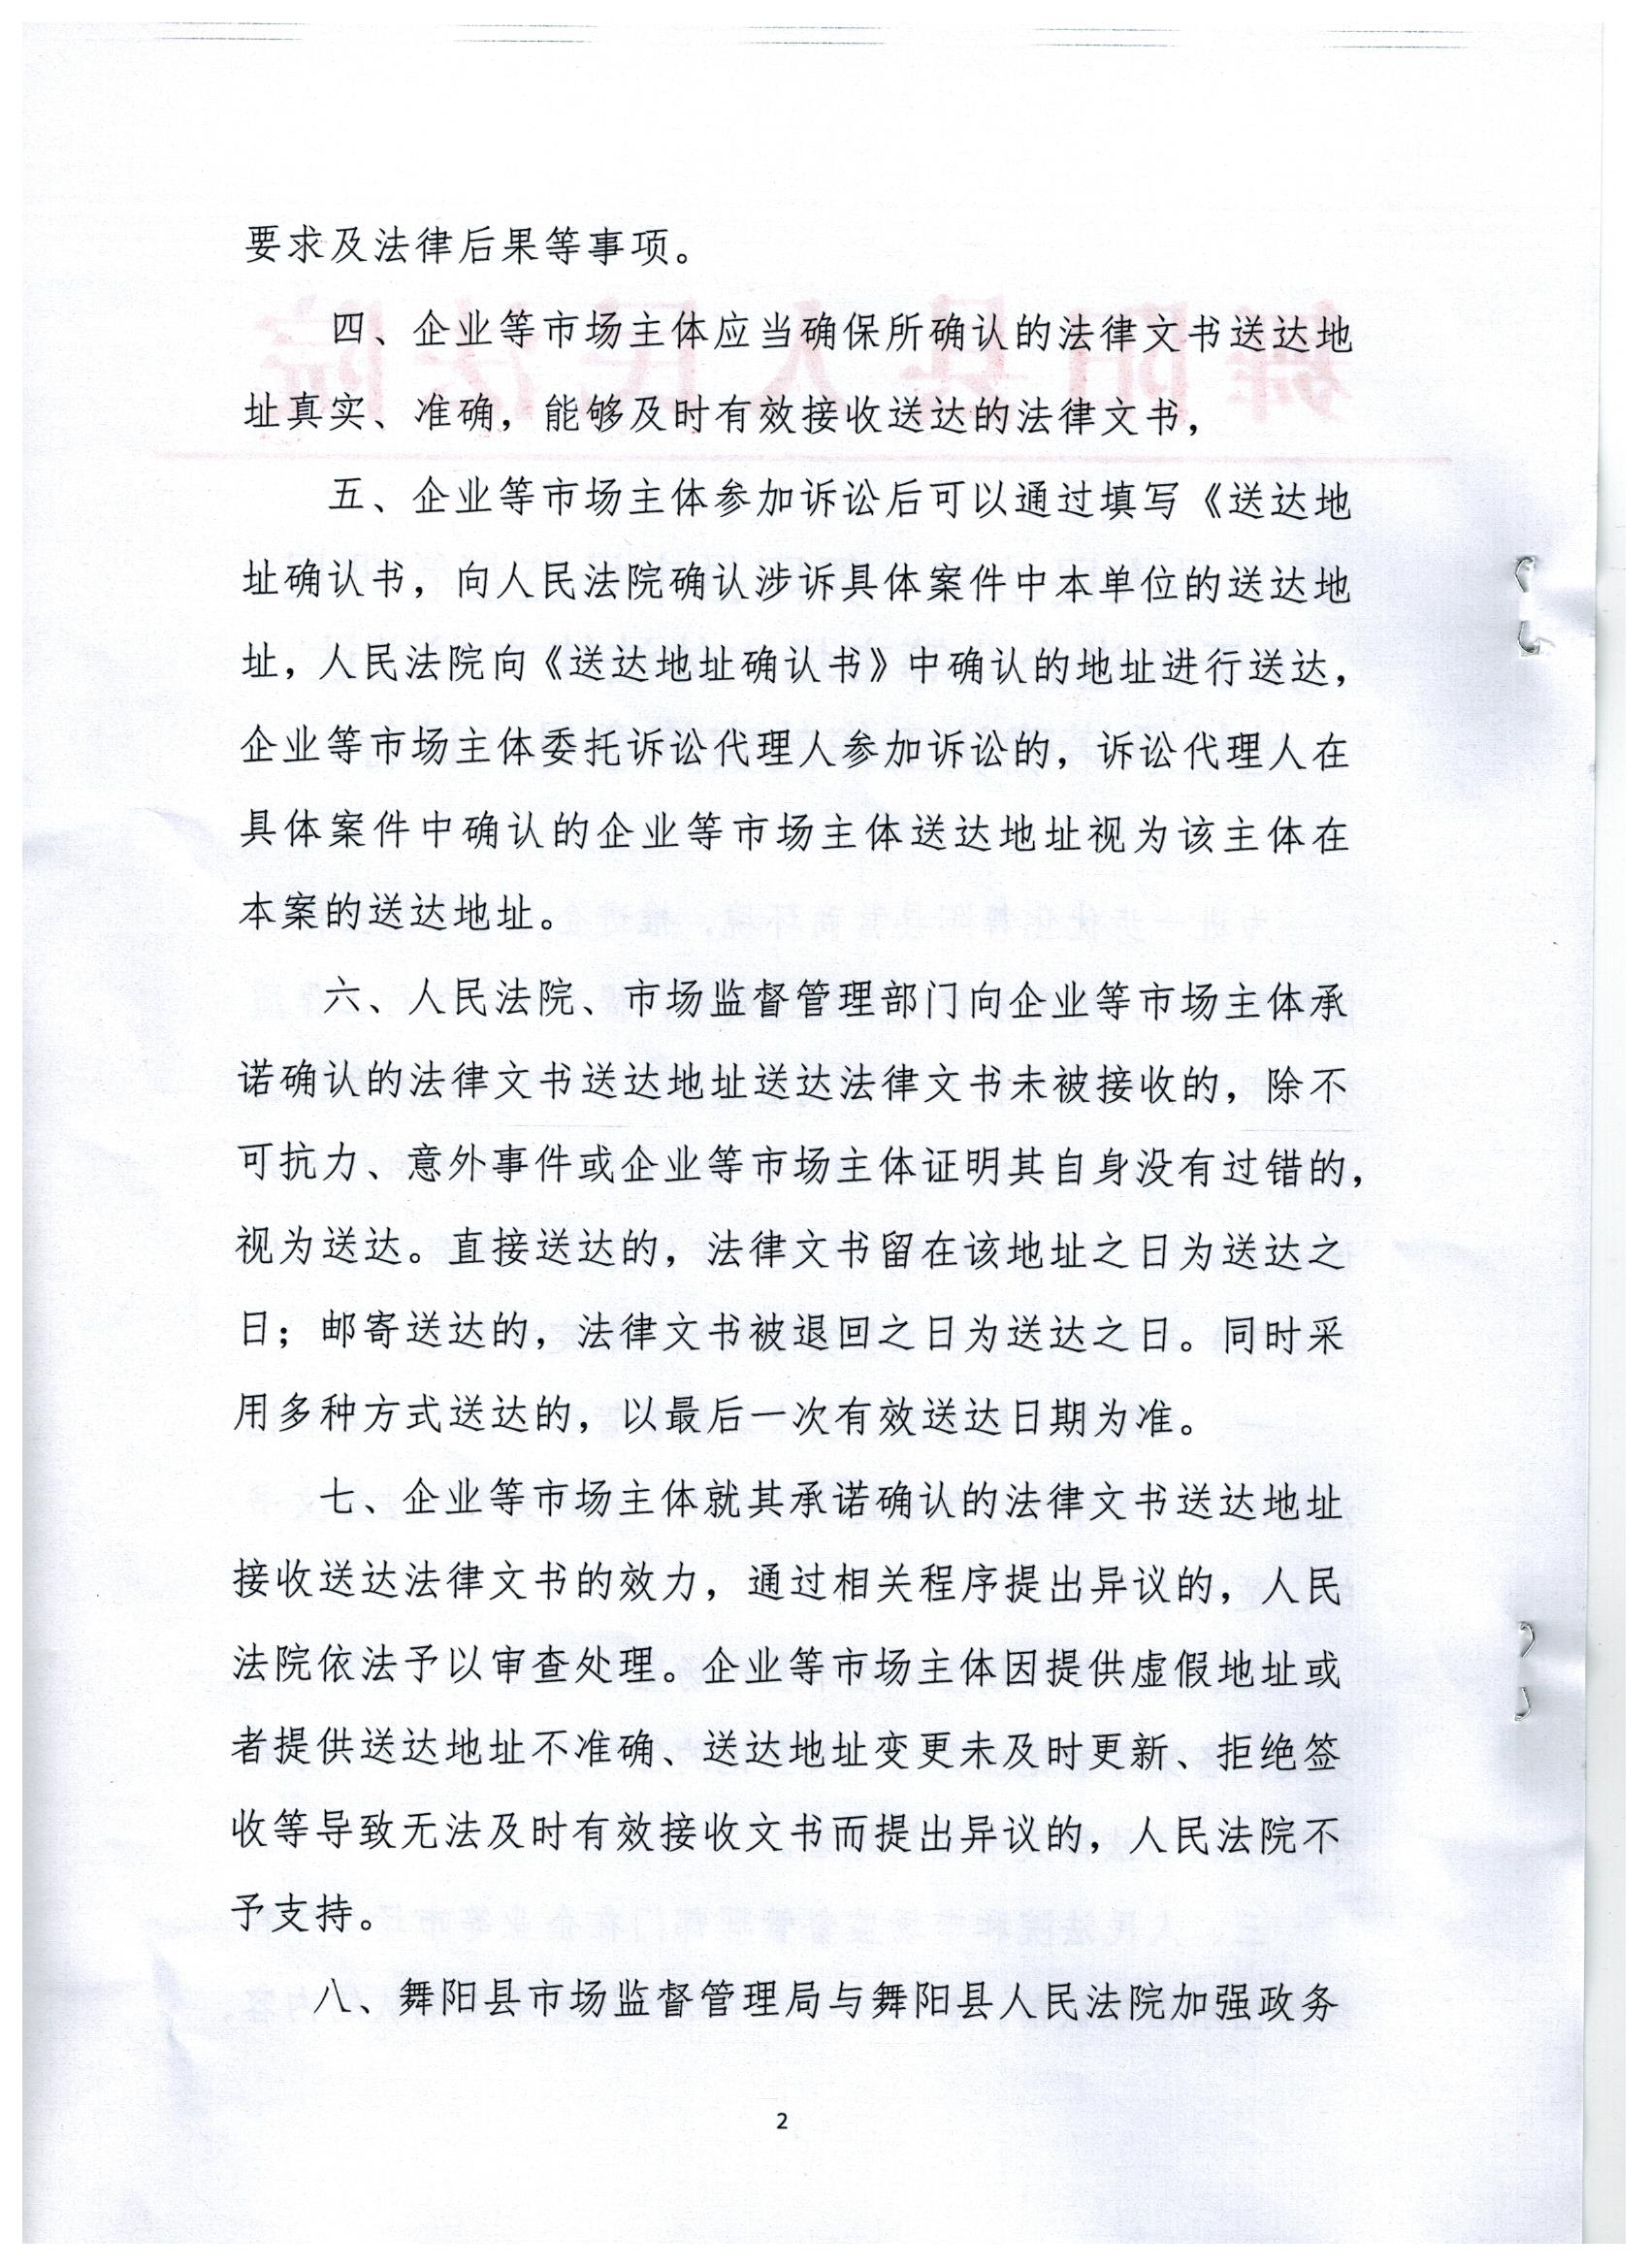 要求及法律后果等事项。
四、企业等市场主体应当确保所确认的法律文书送达地
址真实、准确，能够及时有效接收送达的法律文书，
五、企业等市场主体参加诉讼后可以通过填写《送达地
址确认书，向人民法院确认涉诉具体案件中本单位的送达地
址，人民法院向《送达地址确认书》中确认的地址进行送达，
企业等市场主体委托诉讼代理人参加诉讼的，诉讼代理人在
具体案件中确认的企业等市场主体送达地址视为该主体在
本案的送达地址。
六、人民法院、市场监督管理部门向企业等市场主体承
诺确认的法律文书送达地址送达法律文书未被接收的，除不
可抗力、意外事件或企业等市场主体证明其自身没有过错的，
视为送达。直接送达的，法律文书留在该地址之日为送达之
日；邮寄送达的，法律文书被退回之日为送达之日。同时采
用多种方式送达的，以最后一次有效送达日期为准。
七、企业等市场主体就其承诺确认的法律文书送达地址
接收送达法律文书的效力，通过相关程序提出异议的，人民
法院依法予以审查处理。企业等市场主体因提供虚假地址或
者提供送达地址不准确、送达地址变更未及时更新、拒绝签
收等导致无法及时有效接收文书而提出异议的，人民法院不
予支持。
八、舞阳县市场监督管理局与舞阳县人民法院加强政务
2